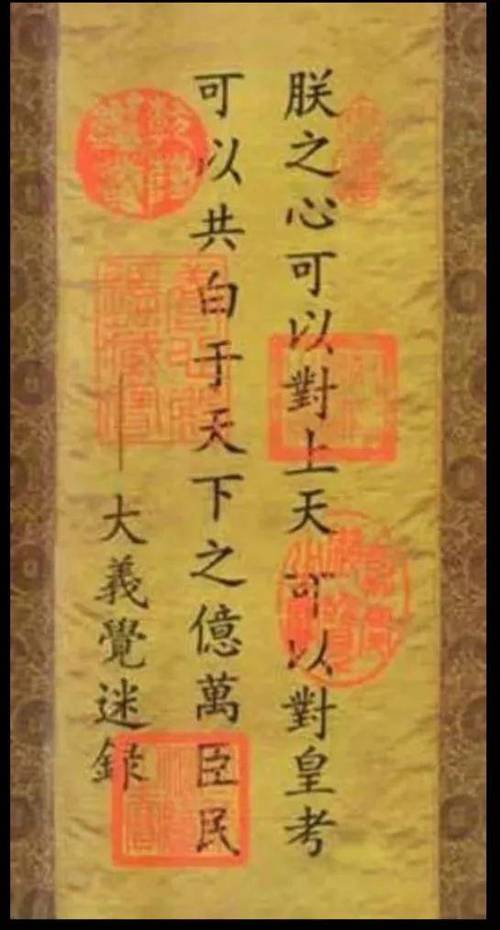 朕之心可以對上天可以對皇考
可以共白于天下之億萬臣民
——大義覺迷錄